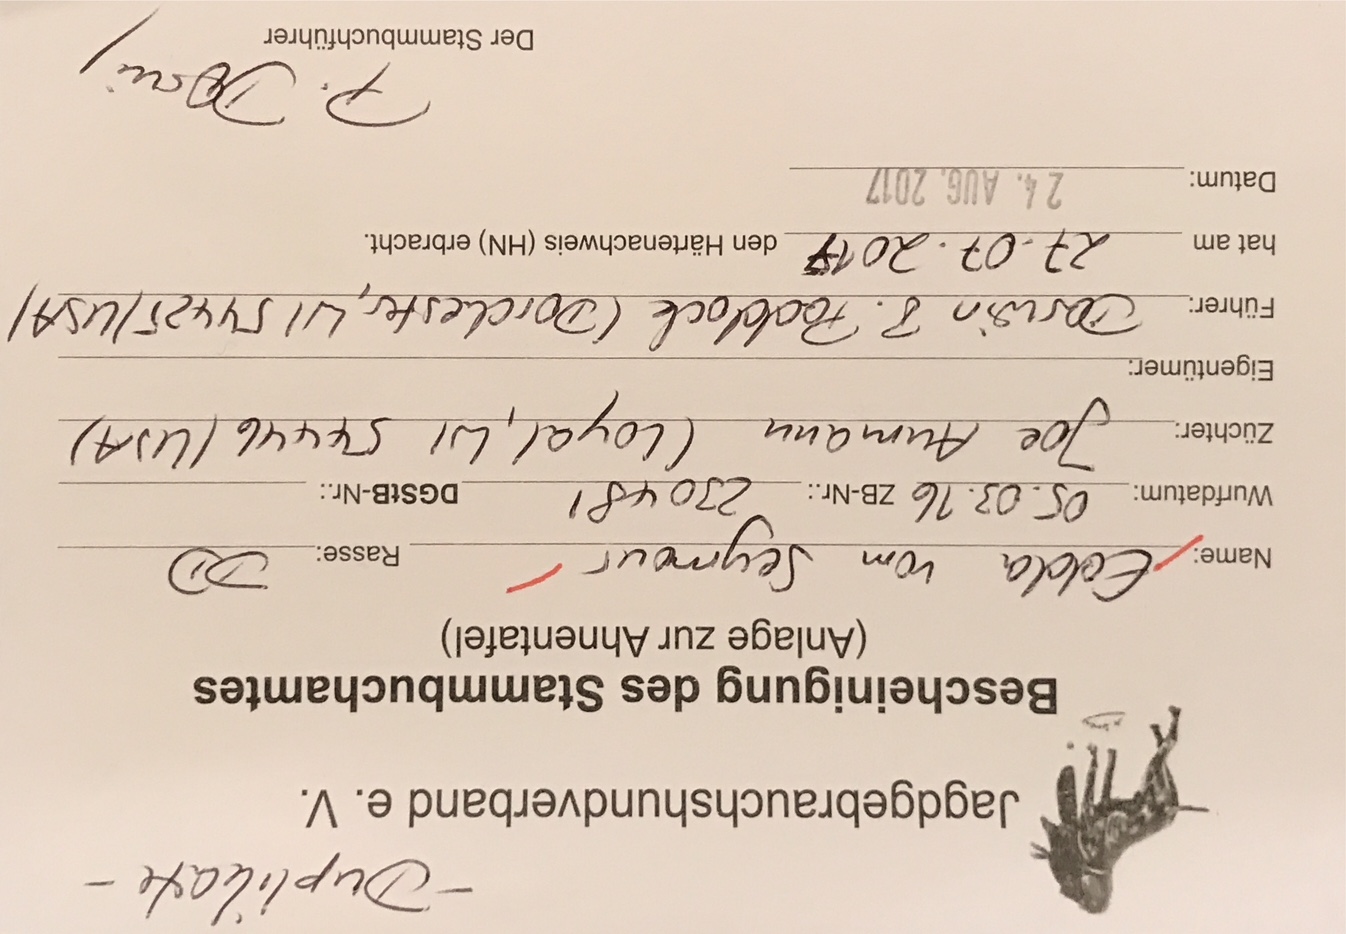 - Duplikate -
Jagdgebrauchshundverband e. V.
Bescheinigung des Stammbuchamtes
(Anlage zur Ahnentafel)
Name: Edda vom Seymour Rasse: DD
Wurfdatum: 05.03.16 ZB-Nr.: 230481 DGStB-Nr.:
Züchter: Joe Aumann (Loyal, WI 54446/USA)
Eigentümer:
Führer: Darwin J. Paddock (Dorchester, WI 54425/USA)
hat am 27.07.2017 den Härtenachweis (HN) erbracht.
Datum: 24. AUG. 2017
P.
Der Stammbuchführer